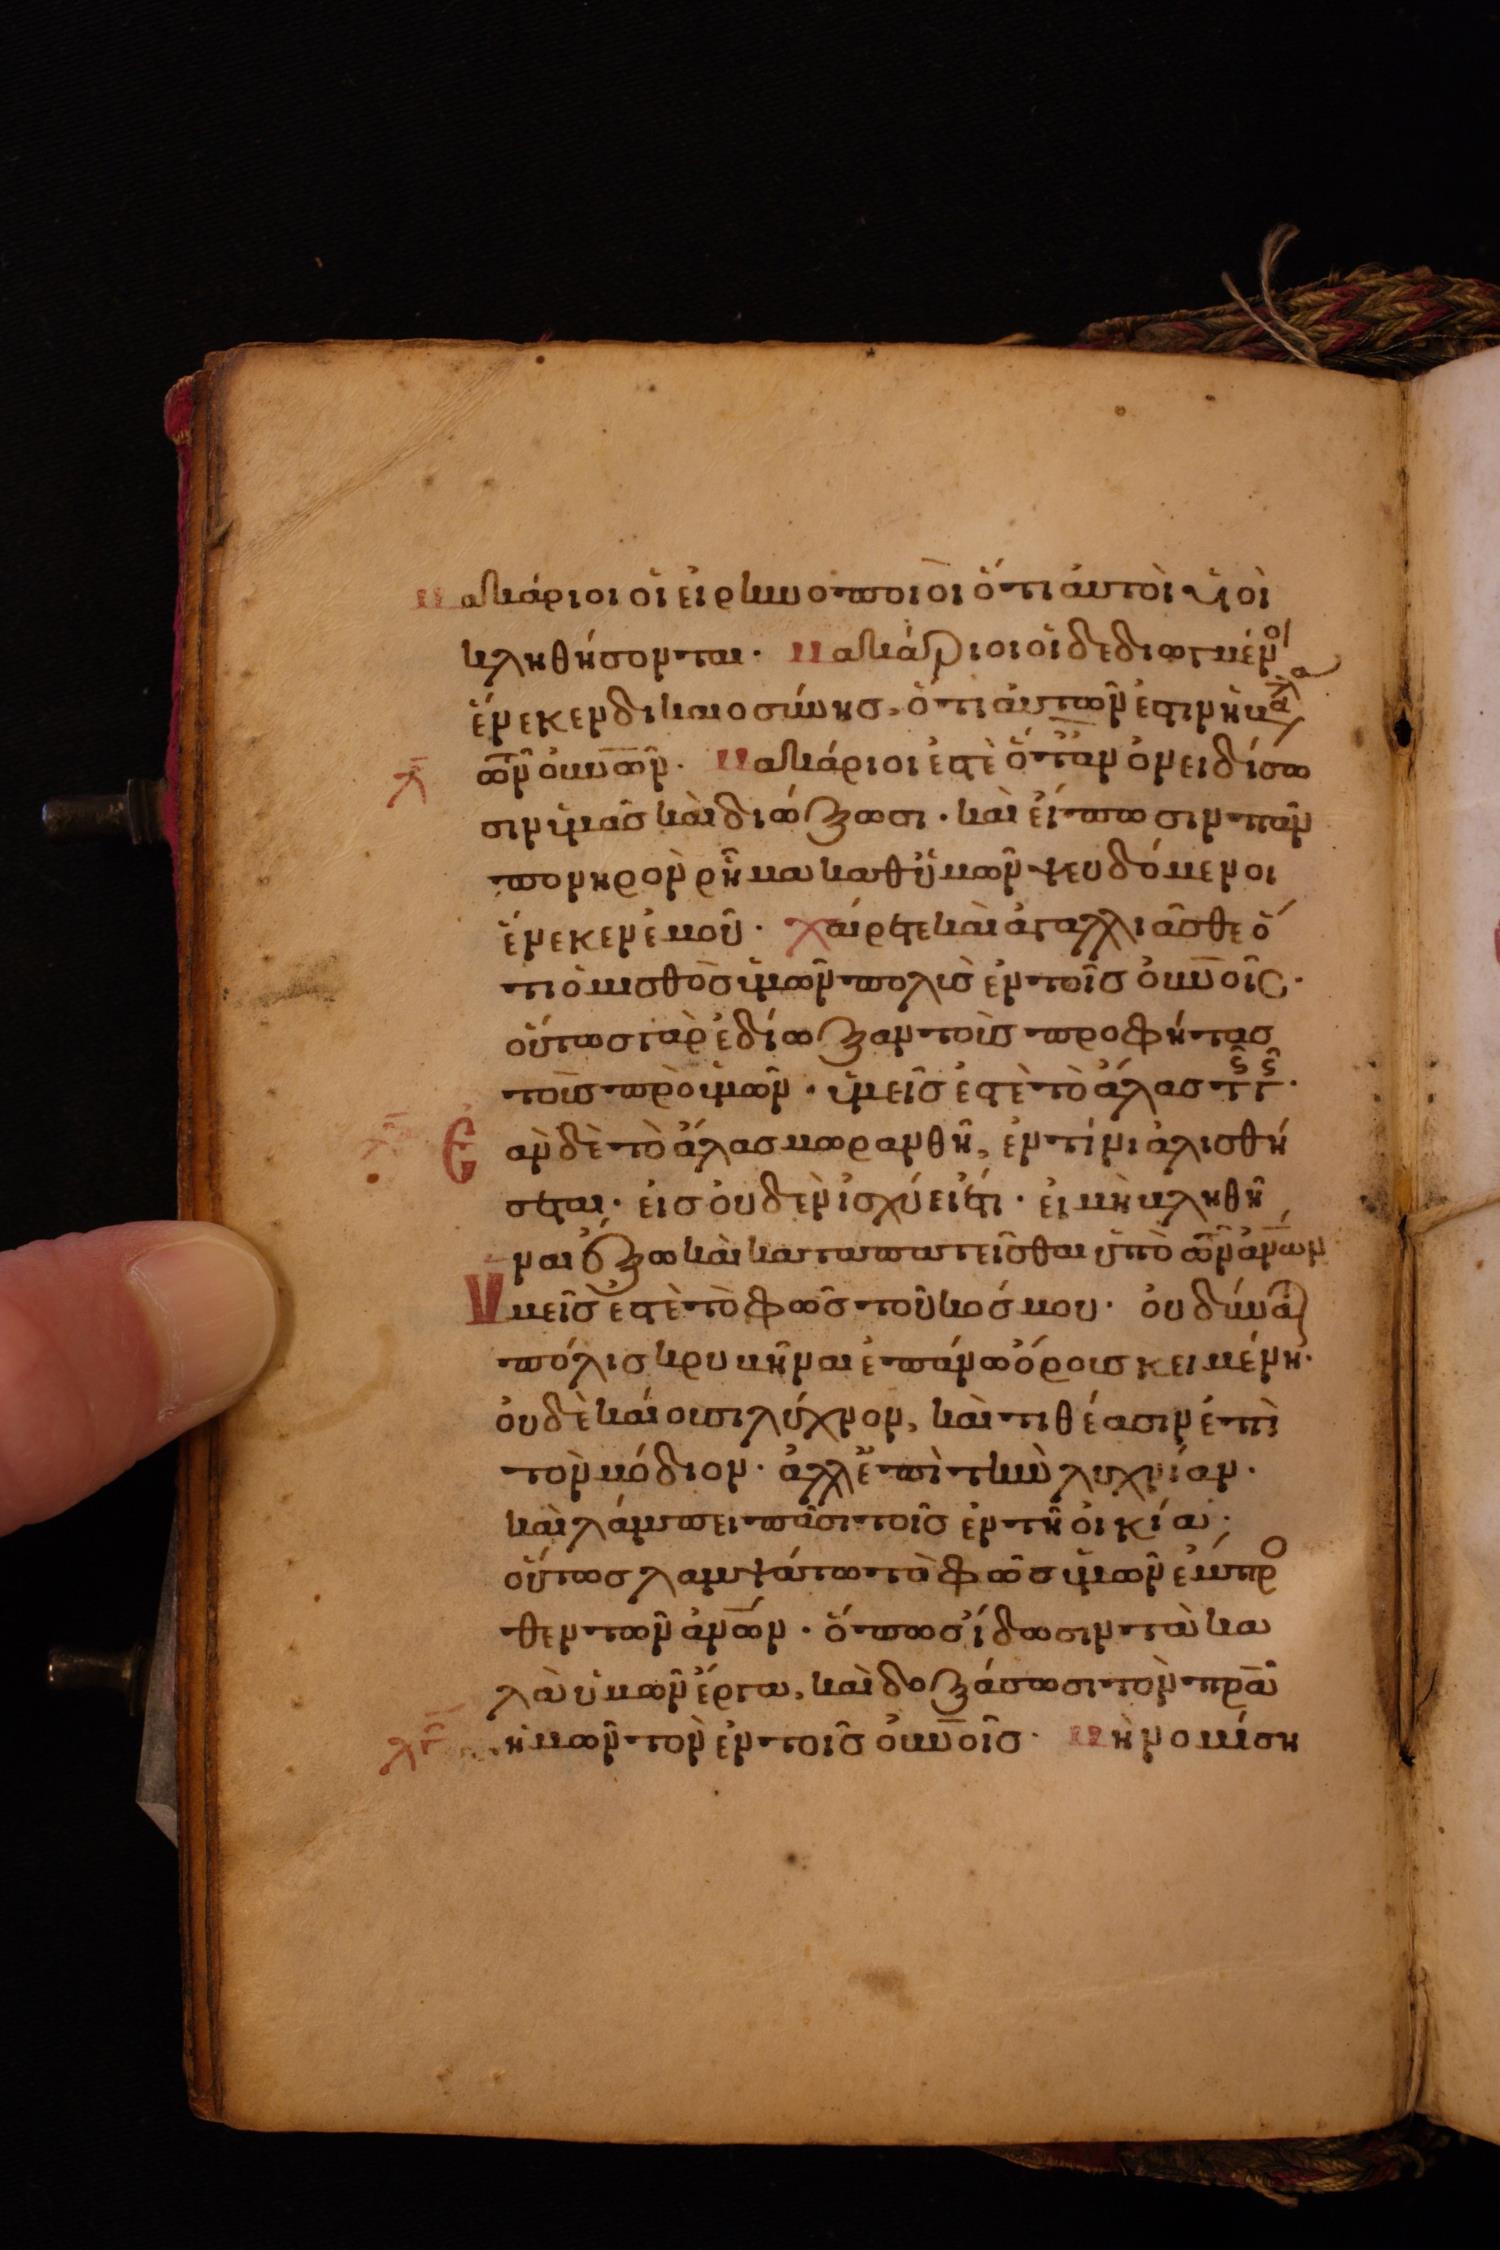 Μακάριοι οἱ εἰρηνοποιοὶ ὅτι αυτοὶ υἱοὶ
κληθήσονται· Μακάριοι οἱ δεδιωγμένοι
ἕνεκεν δικαιοσύνησ, ὅτι ἀυτῶν ἐστιν ἡ βα
τῶν ουνῶν· Μακάριοι ἐστὲ ὅταν ὀνειδίσω
σιν ὑμᾶσ καὶ διώξωσι· καὶ εἴπωσιν πᾶν
πονηρὸν ρῆμα καθ ὑμῶν ψευδόμενοι
ἕνεκεν ἐμοῦ· Χαίρετε καὶ ἀγαλλιᾶσθε ὅ
τι ὁ μισθὸσ ὑμῶν πολὺσ ἐν τοῖσ ὀυνοῖς·
οὕτωσ γὰρ ἐδίωξαν τοὺσ προφήτασ
τοὺσ πρὸ ὑμῶν· ὑμεῖσ ἐστὲ τὸ ἅλασ τῆς γῆς·
Ἐὰν δὲ τὸ ἅλασ μωρανθῆ, ἐν τίνι ἁλισθή
σεται· ἐισ ὀυδὲν ἰσχύει ἔτι· ἐι μὴ βληθῆ
ναι ἔξω καὶ καταπατεῖσθαι ὑπὸ τῶν ἀνων
Υμεῖσ ἐστὲ τὸ φῶσ τοῦ κόσμου· ὀυ δύναται
πόλισ κρυβῆναι ἐπάνω ὄρουσ κειμένη·
ὀυδὲ καίουσι λύχνον, καὶ τιθέασιν ἐπὶ
τὸν μόδιον· ἀλλ ἐπὶ τὴν λυχνίαν·
καὶ λάμπει πᾶσι τοῖσ ἐν τῆ οἰκία·
οὕτωσ λαμψάτω τὸ φῶσ ὑμῶν ἔμπρο
θεν τῶν ἀνων· ὅπωσ ἴδωσιν τὰ κα
λὰ ὑμῶν ἔργα, καὶ δοξάσωσι τὸν πρα
ἡμῶν τὸν ἐν τοῖσ ὀυνοῖσ· Μὴ νομίση